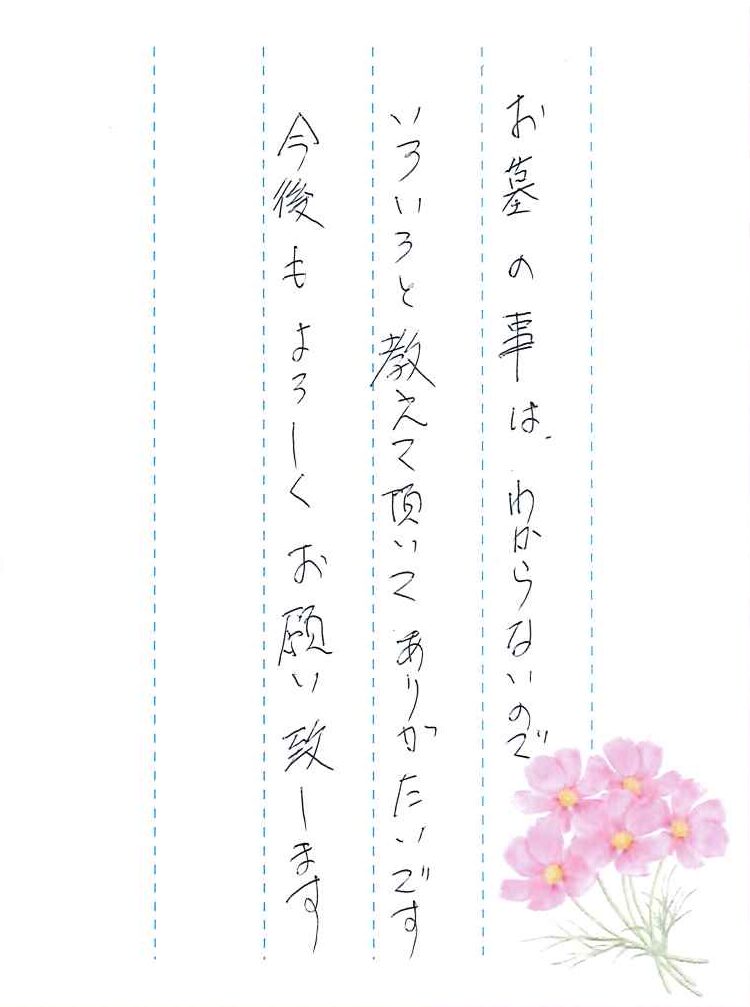 お墓の事は、わからないので
いろいろと教えて頂いてありがたいです
今後もよろしくお願い致します